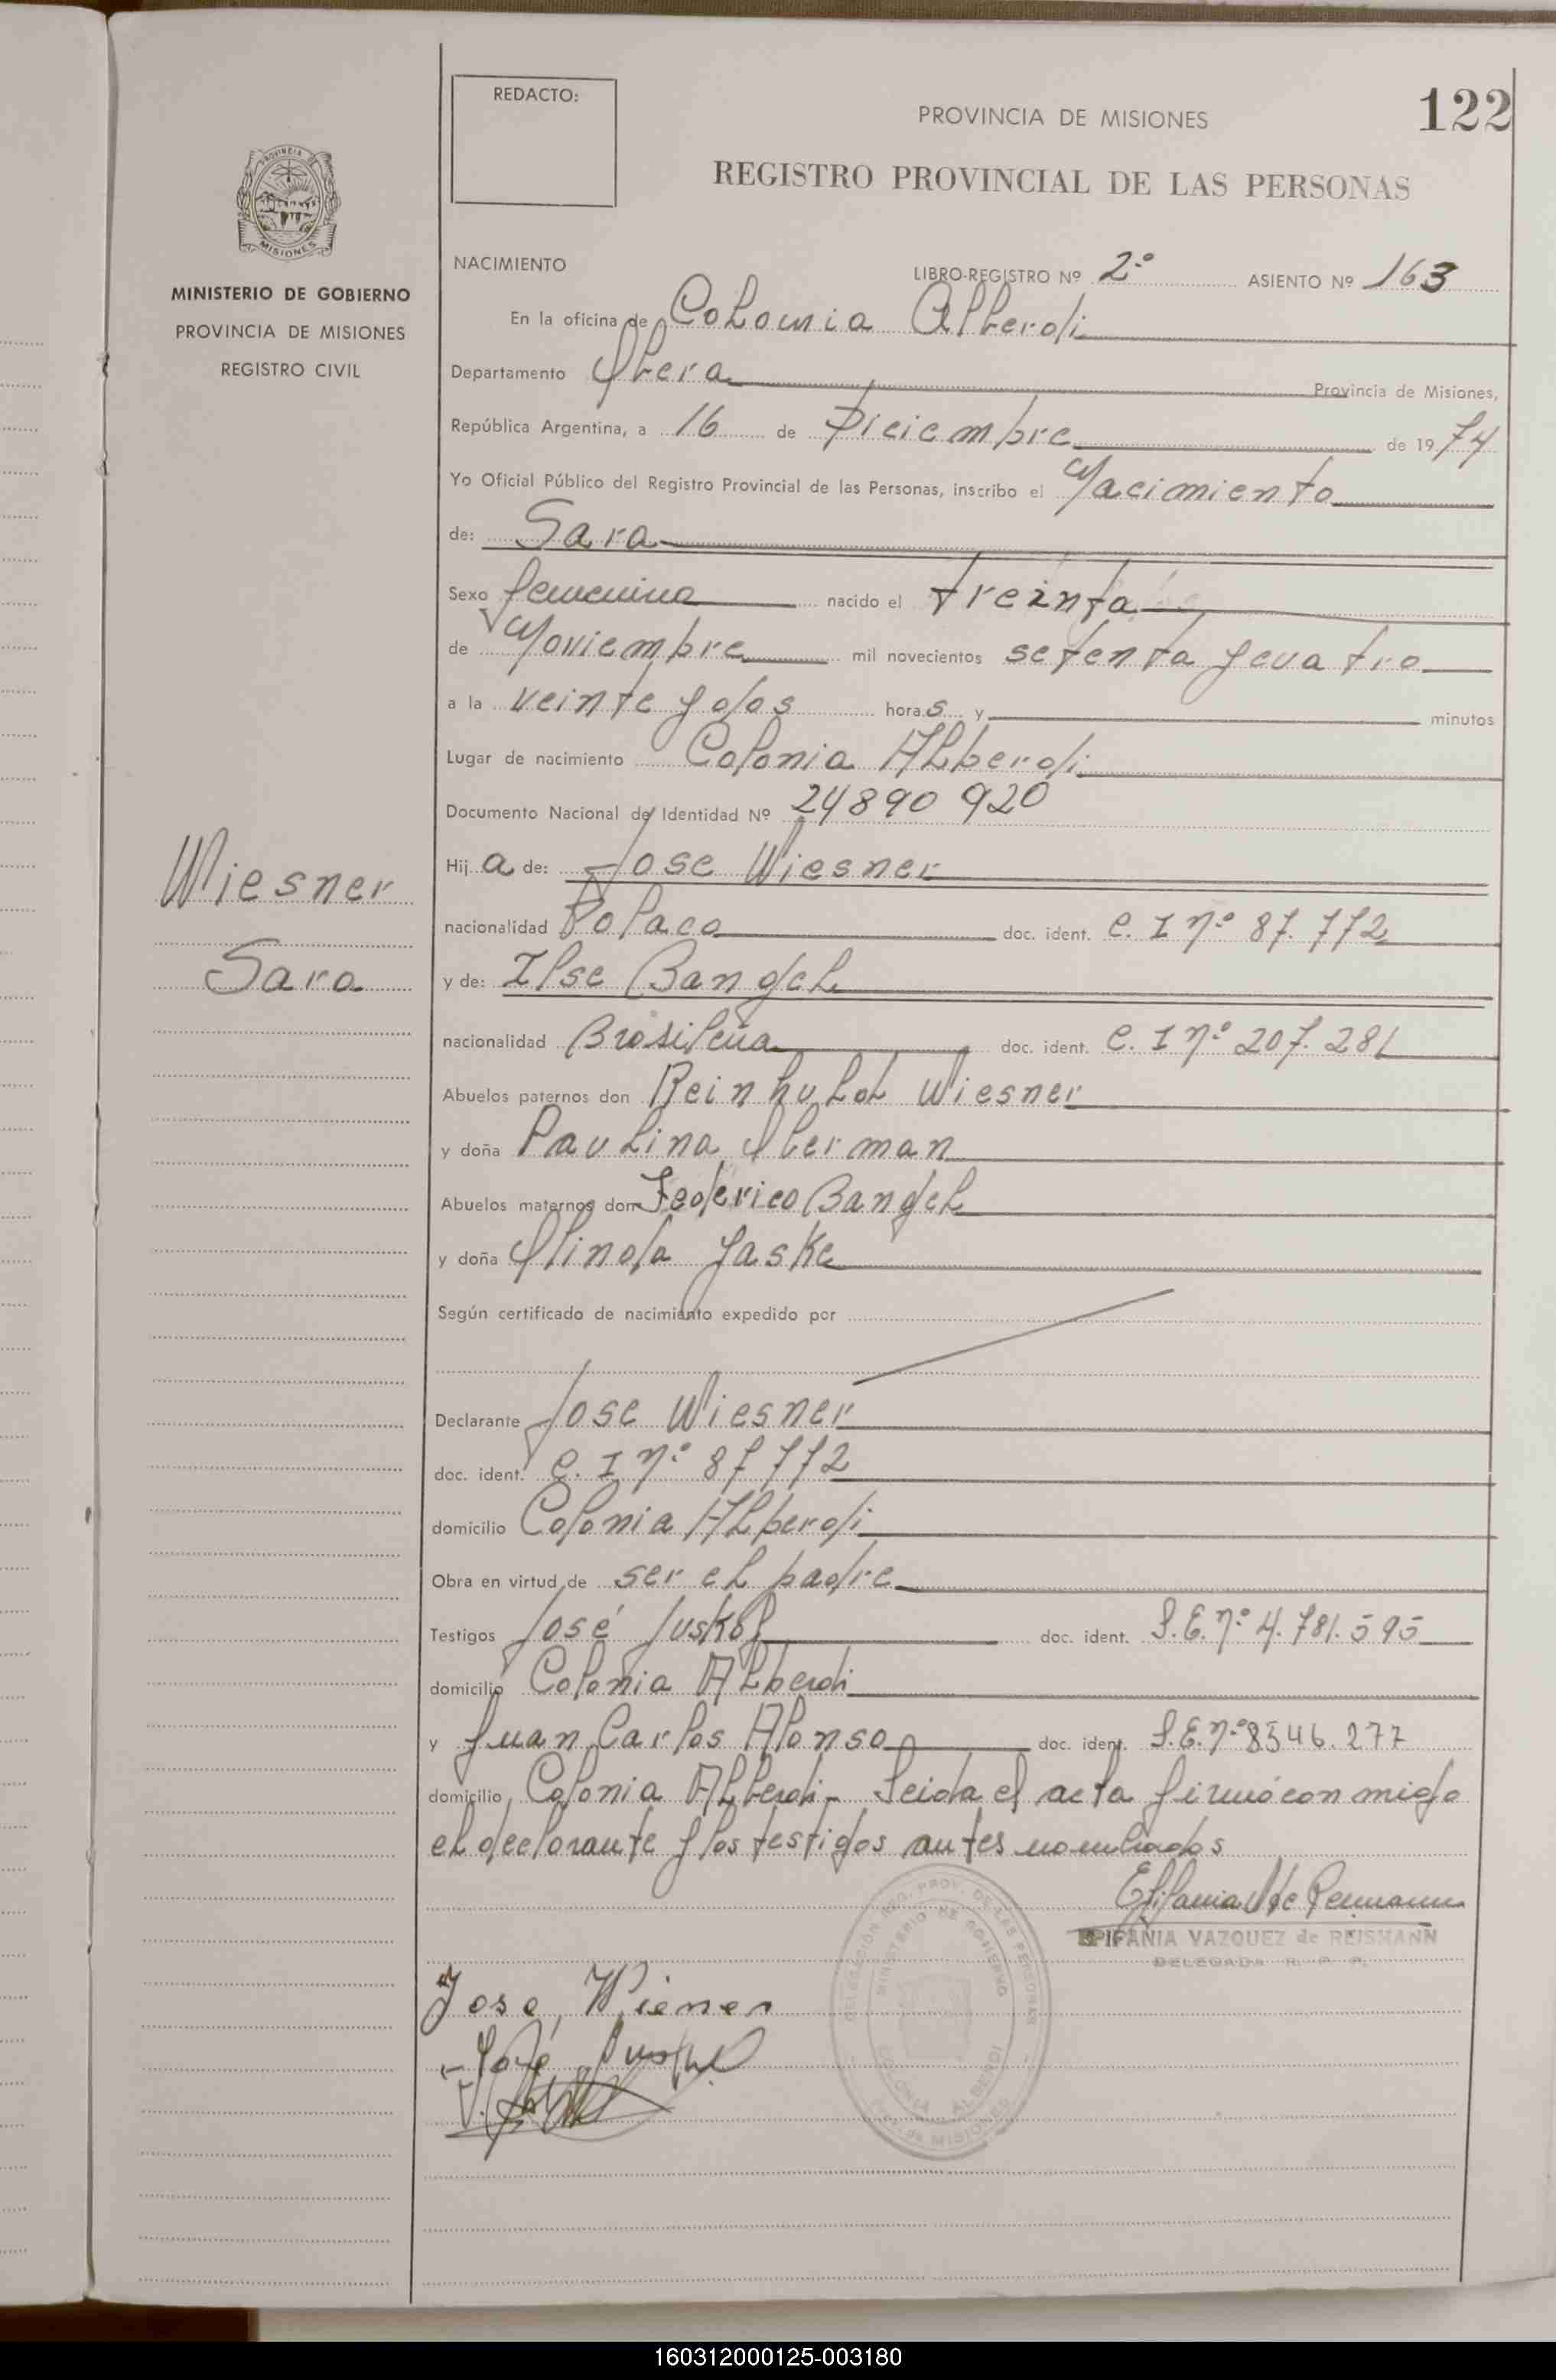 REDACTO:
PROVINCIA DE MISIONES
122
REGISTRO PROVINCIAL DE LAS PERSONAS
PROVINCIA DE
MISIONES
MINISTERIO DE GOBIERNO
PROVINCIA DE MISIONES
REGISTRO CIVIL
NACIMIENTO LIBRO-REGISTRO Nº 2º ASIENTO Nº 163
En la oficina de Colonia Alberdi
Departamento Obera Provincia de Misiones,
República Argentina, a 16 de Diciembre de 1974
Yo Oficial Público del Registro Provincial de las Personas, inscribo el Nacimiento
de: Sara
Sexo femenino nacido el treinta
de Noviembre mil novecientos setenta y cuatro
a la veinte y dos horas y minutos
Lugar de nacimiento Colonia Alberdi
Documento Nacional de Identidad Nº 24890 920
Wiesner
Sara
Hija de: Jose Wiesner
nacionalidad Polaco doc. ident. C. I nº 87.772
y de: Ilse Bangel
nacionalidad Brasileña doc. ident. C. I nº 207.281
Abuelos paternos don Reinhold Wiesner
y doña Paulina Oberman
Abuelos maternos don Federico Bangel
y doña Olinda Jaske
Según certificado de nacimiento expedido por
Declarante Jose Wiesner
doc. ident. C. I nº 87772
domicilio Colonia Alberdi
Obra en virtud de ser el padre
Testigos José Juskof doc. ident. L.E. nº 4.781.595
domicilio Colonia Alberdi
y Juan Carlos Alonso doc. ident. L.E. nº 8546.277
domicilio Colonia Alberdi- Leida el acta firmó con migo
el declarante y los testigos antes nombrados
EPIFANIA VAZQUEZ de REISMANN
DELEGADA R. P. P.
DELEGACIÓN REG. PROV. DE LAS PERSONAS
MINISTERIO DE GOBIERNO
COLONIA ALBERDI
MISIONES
José Wiesner
José
160312000125-003180